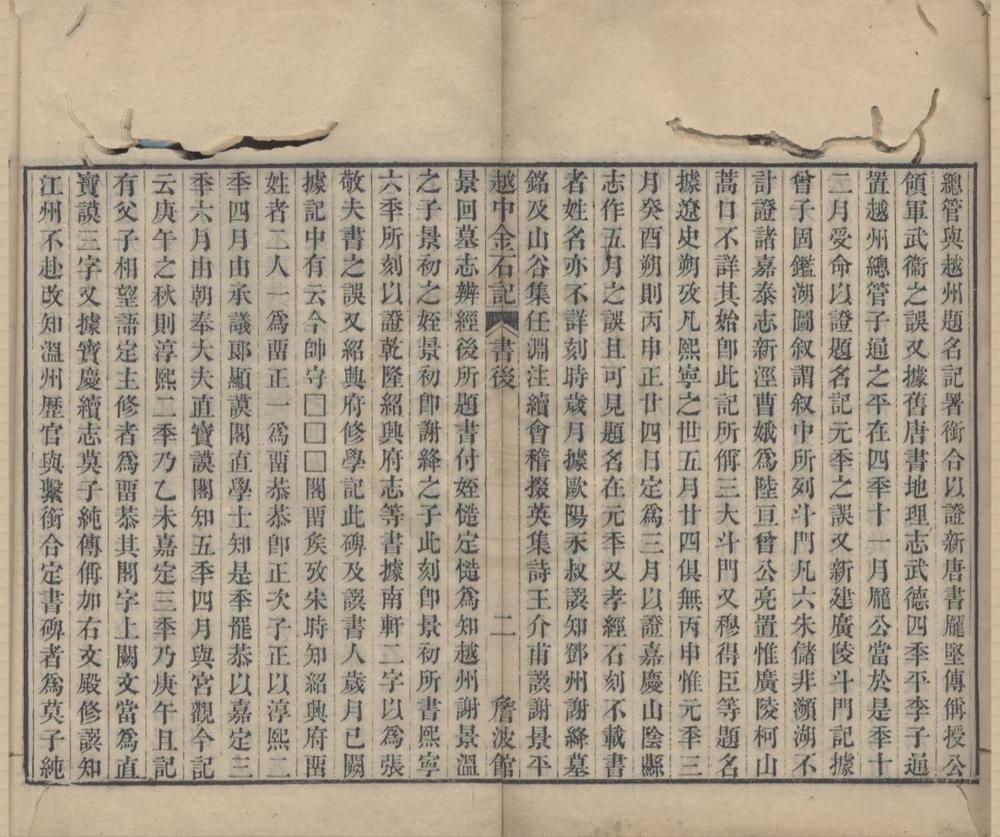 總管與越州題名記署銜合以證新唐書龐堅傳偁授公
領軍武衞之誤又據舊唐書地理志武德四秊平李子通
置越州總管子通之平在四秊十一月龐公當於是秊十
二月受命以證題名記元秊之誤又新建廣陵斗門記據
曾子固鑑湖圖叙謂叙中所列斗門凡六朱儲非瀕湖不
計證諸嘉泰志新涇曹娥爲陸亘曾公亮置惟廣陵柯山
蒿口不詳其始卽此記所偁三大斗門又穆得臣等題名
據遼史朔攷凡熙寧之世五月廿四俱無丙申惟元秊三
月癸酉朔則丙申正廿四日定爲三月以證嘉慶山陰縣
志作五月之誤且可見題名在元秊又孝經石刻不載書
者姓名亦不詳刻時歲月據歐陽永叔譔知鄧州謝絳墓
銘及山谷集任淵注續會稽掇英集詩王介甫譔謝景平
越中金石記 書後 二 詹波館
景回墓志辨經後所題書付姪愭定愭爲知越州謝景溫
之子景初之姪景初卽謝絳之子此刻卽景初所書熙寧
六秊所刻以證乾隆紹興府志等書據南軒二字以爲張
敬夫書之誤又紹興府修學記此碑及譔書人歲月已闕
據記中有云今帥守□□□閣畱矦攷宋時知紹興府畱
姓者二人一爲畱正一爲畱恭恭卽正次子正以淳熙二
秊四月由承議郞顯謨閣直學士知是秊罷恭以嘉定三
秊六月由朝奉大夫直寶謨閣知五秊四月與宮觀今記
云庚午之秋則淳熙二秊乃乙未嘉定三秊乃庚午且記
有父子相望語定主修者爲畱恭其閣字上闕文當爲直
寶謨三字又據寶慶續志莫子純傳偁加右文殿修譔知
江州不赴改知溫州歷官與繫銜合定書碑者爲莫子純